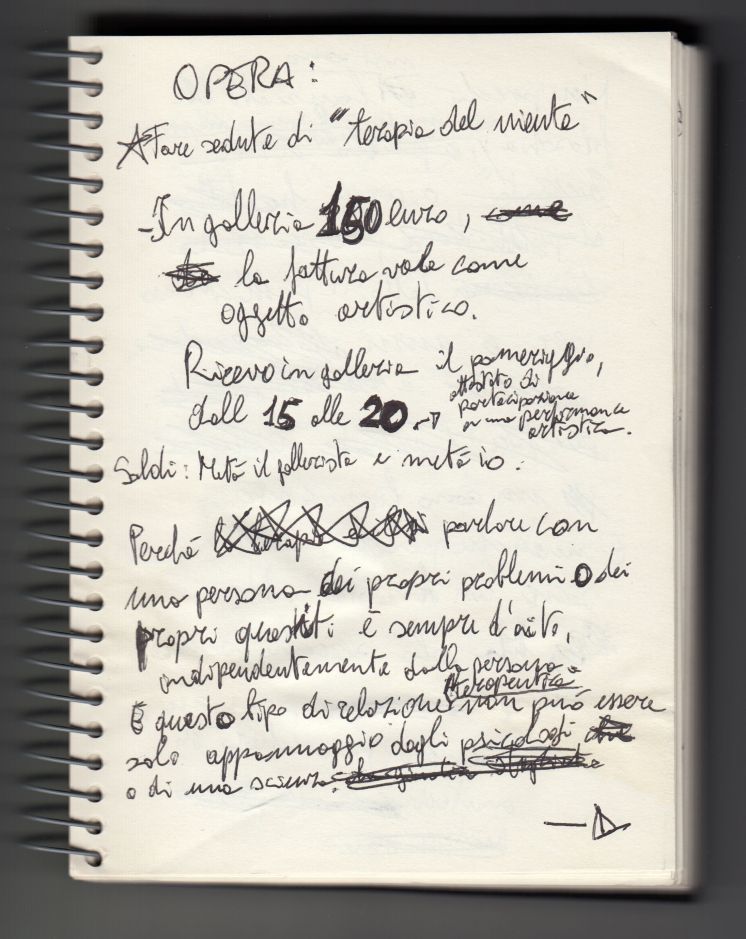 OPERA:
Fare sedute di "terapia del niente"
- In galleria 150 euro, come
la fattura vale come
oggetto artistico.
Ricevo in galleria il pomeriggio,
dall 15 alle 20 →
attestato di
partecipazione
a una performance
artistica.
Soldi: Metà il gallerista e metà io.
Perché parlare con
una persona dei propri problemi o dei
propri quesiti è sempre d'aiuto,
indipendentemente dalla persona.
terapeutica
E questo tipo di relazione non può essere
solo appannaggio degli psicologi
o di una scienza.